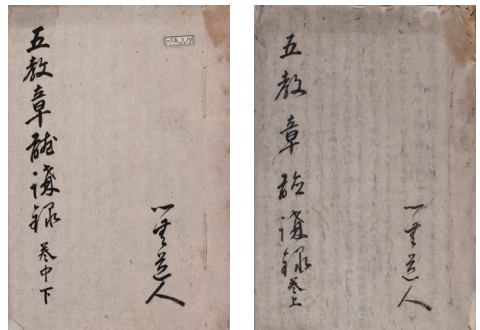 五教章聴講録 巻中下
一無道人
五教章聴講録 巻上
一無道人